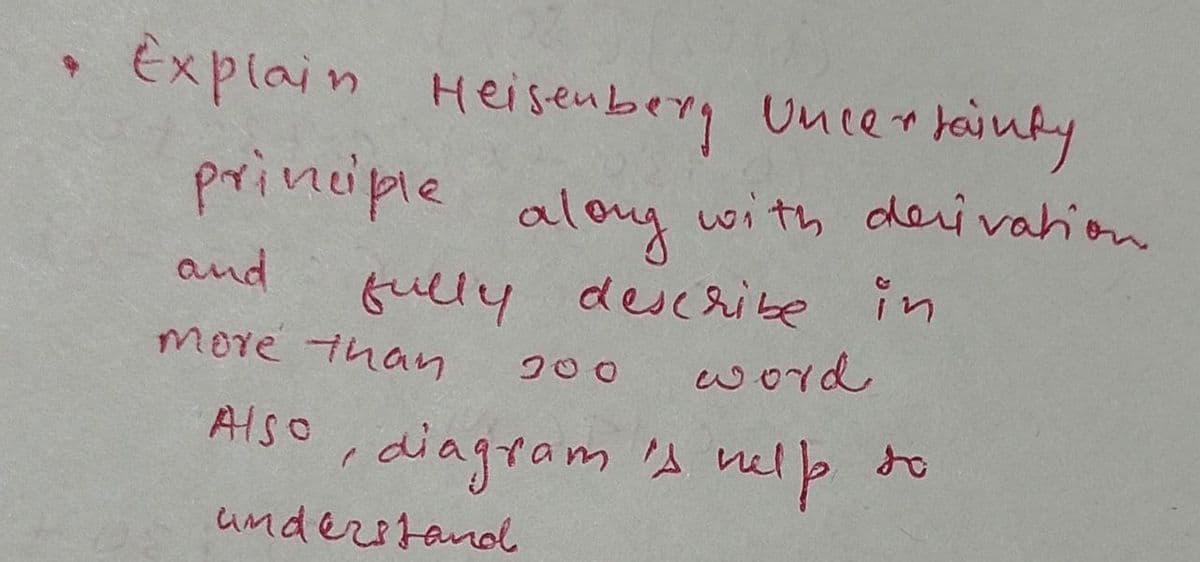 • Explain Heisenberg Uncertainty
principle along with derivation
and fully describe in
more than 200 word
Also, diagram is help to
understand